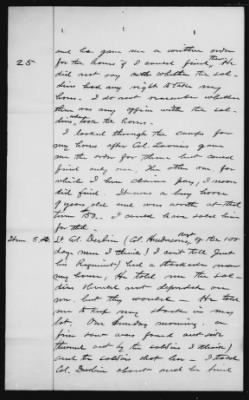 and he gave me a written order
for the horse if I could find them. He
25 did not say whether the sol-
diers had any right to take my
horse. I do not remember whether
there was any officer with the sol-
diers who took the horse.
I looked through the camps for
my horse after Col. gave
me the order for them but could
find only one. The other one for
which I here claim pay, I never
did find. It was a bay horse
9 years old and was worth at that
time $150.. I could have sold him
for that.
Item 5, Lt. Col. Durbin (Col. of the 100
day men I think) I can't tell just
his Regiment) had a stockade near
my house. He told me the sol-
diers should not depredate on
me, but they would - He told
me to keep my stock in my
lot. One Sunday morning, a
fine sow was found outside
by the soldiers I think)
and the soldiers shot her - I told
Col. Durbin about and he said